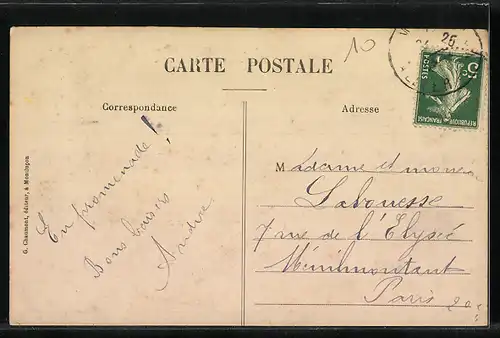 10
CARTE POSTALE
Correspondance
Adresse
25
5c
POSTES
RÉPUBLIQUE FRANÇAISE
En promenade!
Bons baisers
Andrée
Madame et monsieur
Labouesse
7 rue de l'Elysée
Ménilmontant
Paris 20e
G. Chaumont, éditeur, à Mondragon